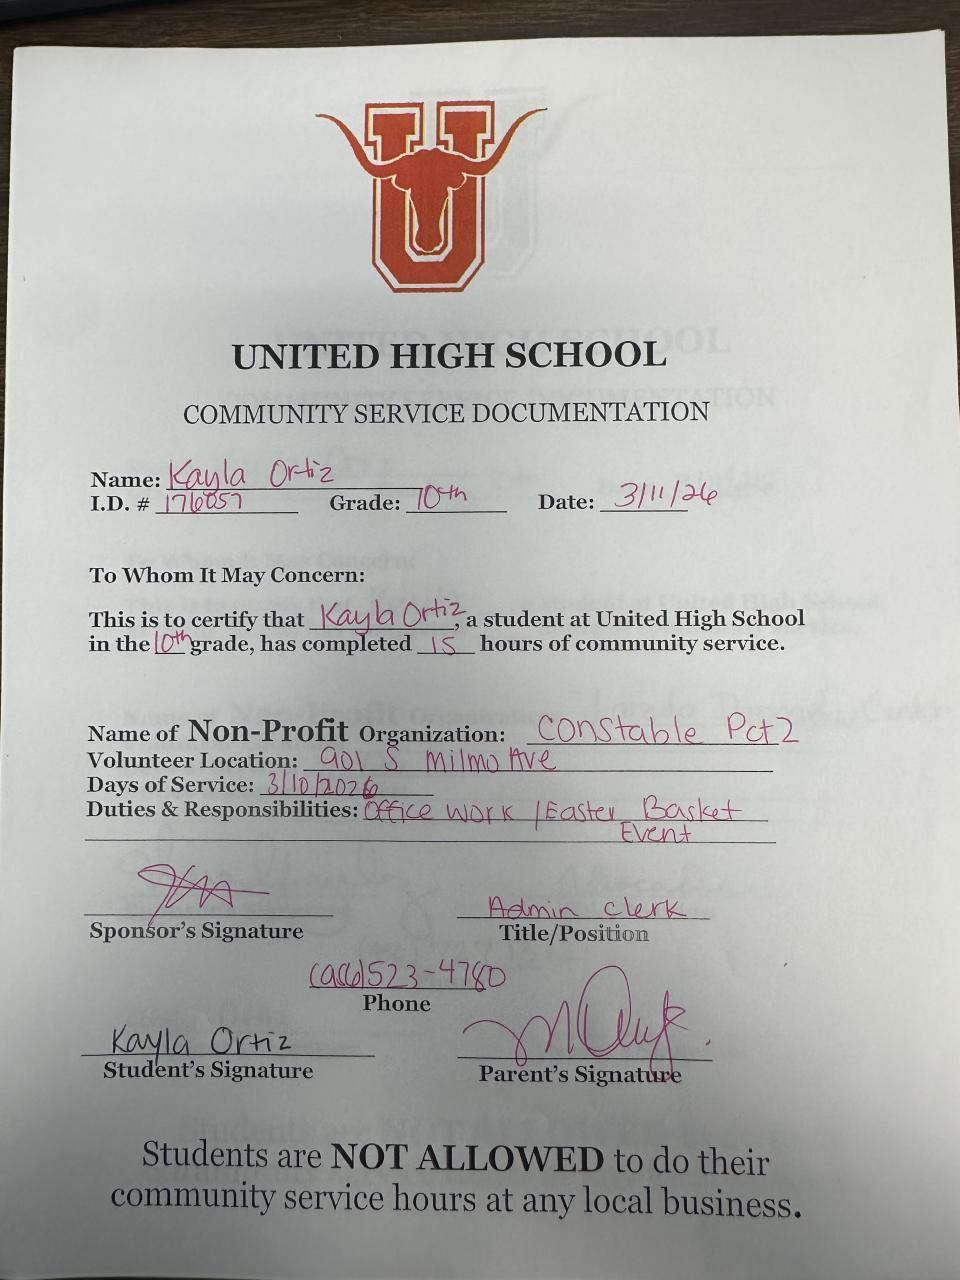 U
UNITED HIGH SCHOOL
COMMUNITY SERVICE DOCUMENTATION
Name: Kayla Ortiz
I.D. # 176057 Grade: 10th Date: 3/11/26
To Whom It May Concern:
This is to certify that Kayla Ortiz, a student at United High School
in the 10th grade, has completed 15 hours of community service.
Name of Non-Profit Organization: Constable Pct 2
Volunteer Location: 901 S Milmo Ave
Days of Service: 3/10/2026
Duties & Responsibilities: Office work / Easter Basket
Event
Admin clerk
Sponsor's Signature Title/Position
(956)523-4780
Phone
Kayla Ortiz
Student's Signature Parent's Signature
Students are NOT ALLOWED to do their
community service hours at any local business.